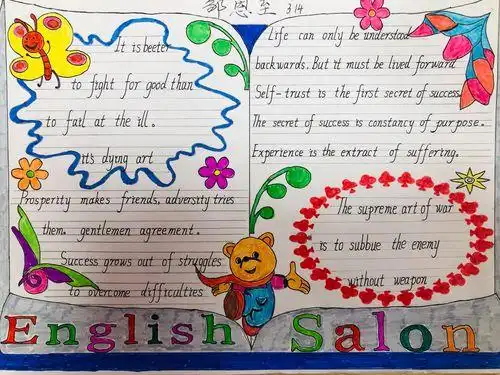 邹恩至 314
It is beeter
to fight for good than
to fail at the ill.
it's dying art
Prosperity makes friends, adversity tries
them. gentlemen agreement.
Success grows out of struggles
to overcome difficulties
Life can only be understood
backwards. But it must be lived forward.
Self-trust is the first secret of success.
The secret of success is constancy of purpose.
Experience is the extract of suffering.
The supreme art of war
is to subbue the enemy
without weapon
English Salon